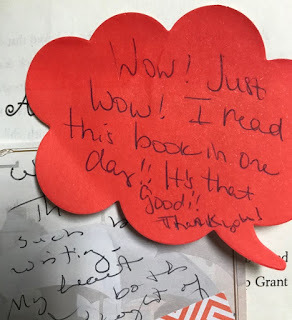 A
Wow! Just
Wow! I read
this book in one
day!! It's that
good!!
Thank you!
w
Th
such
writing.
My heart
bo th
nd
o Grant